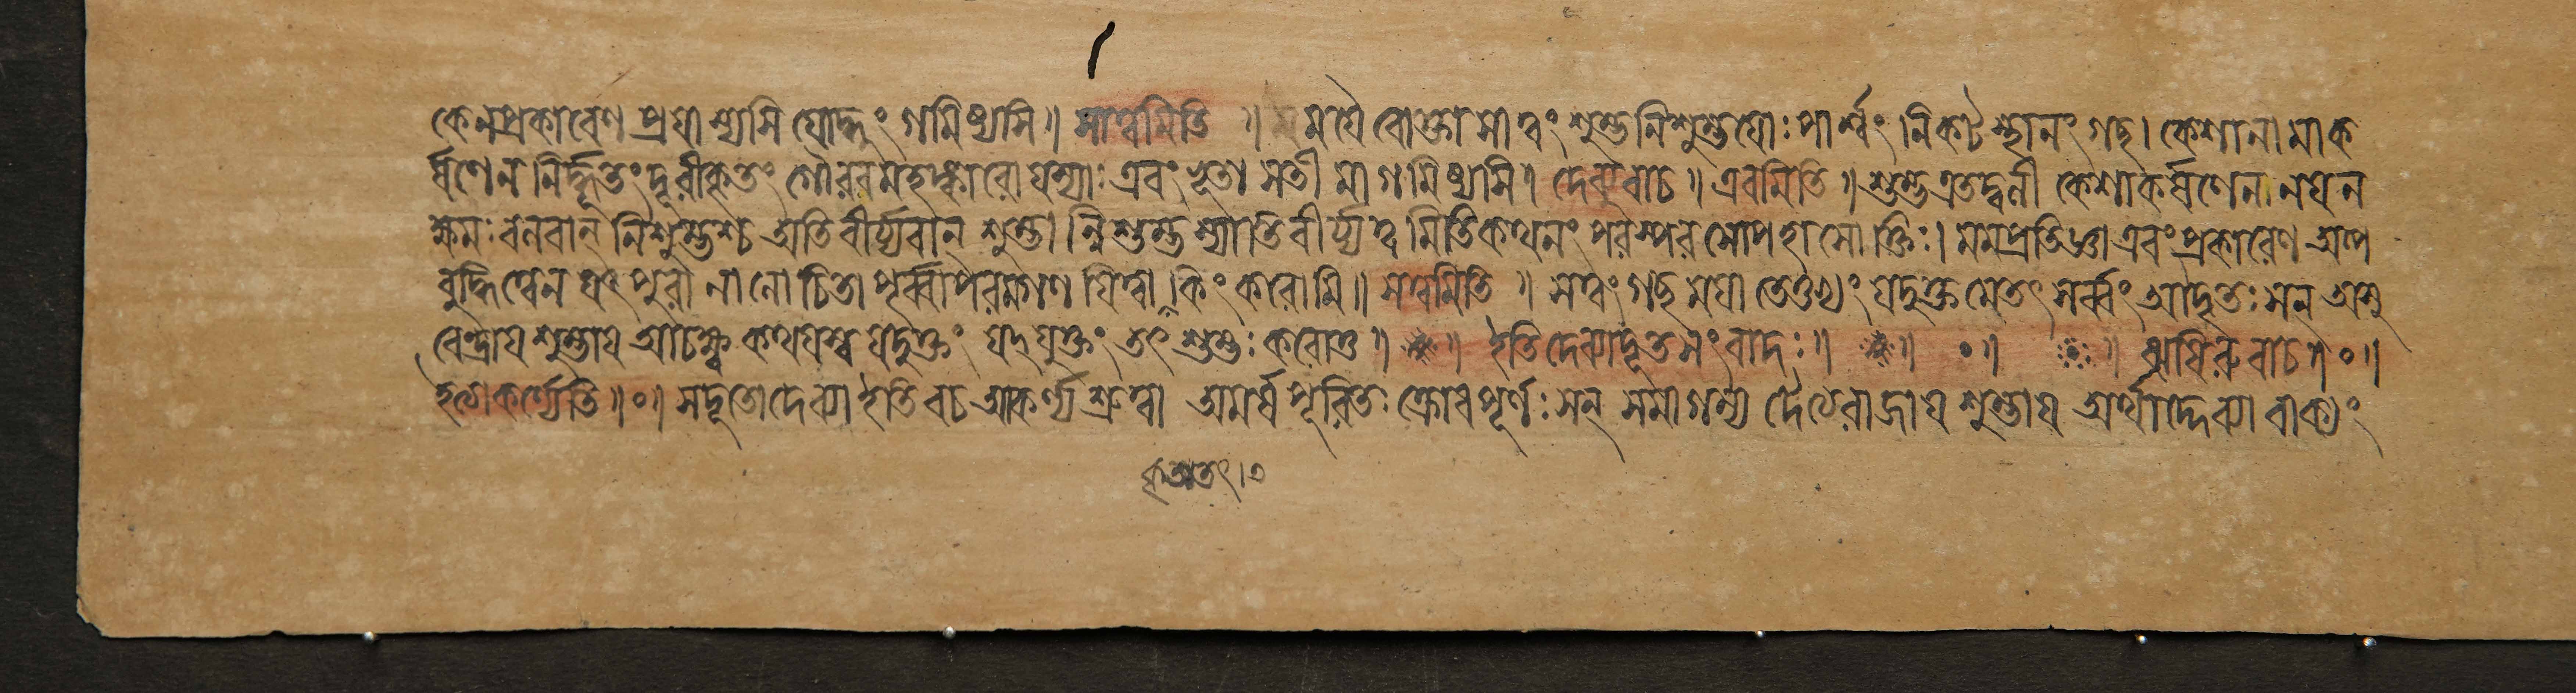 কেনপ্রকারেণ প্রযাস্যসি যোদ্ধুং গমিষ্যসি॥ সাত্বমিতি ॥ মযৈবোক্তা সাত্বং শুম্ভনিশুম্ভযোঃ পার্শ্বং নিকটস্থানং গচ্ছ। কেশানামাক
র্ষণেন নির্দ্ধূতং দূরীকৃতং গৌরবমহঙ্কারো যস্যাঃ এবং ভূতা সতী মা গমিষ্যসি॥ দেব্যুবাচ॥ এবমিতি॥ শুম্ভ কেশাকর্ষণেন নযেন
বলবান্ নিশুম্ভশ্চ অতিবীর্য্যবান্ শুম্ভান্নিশুম্ভস্যাতিবীর্য্যত্বমিতিকথনং পরস্পর সোপহাসোক্তিঃ। মমপ্রতিজ্ঞা এবংপ্রকারেণ অল্প
বুদ্ধিত্বেন যৎ পুরা নালোচিতা পূর্ব্বাপর কিং করোমি॥ সত্বমিতি ॥ সত্বং গচ্ছ মযা তেতুভ্যং যদুক্তমেতৎ সর্ব্বং আদৃতঃ সন্ অসু
রেন্দ্রায শুম্ভায আচক্ষ্ব কথযস্ব যদুক্তং যদ্ যুক্তং তৎ শুম্ভঃ করোতু॥ ॥ ইতি দেব্যাদূতসংবাদঃ॥ ॥ ০॥ ॥ ঋষিরুবাচ॥০॥
ইত্যাকর্ণ্যেতি॥০॥ সদূতো দেব্যা ইতি বচ আকর্ণ্য শ্রুত্বা অমর্ষ পূরিতঃ ক্রোধপূর্ণঃ সন্ সমাগম্য দৈত্যরাজায শুম্ভায অর্থাদ্দেব্যা বাক্যং